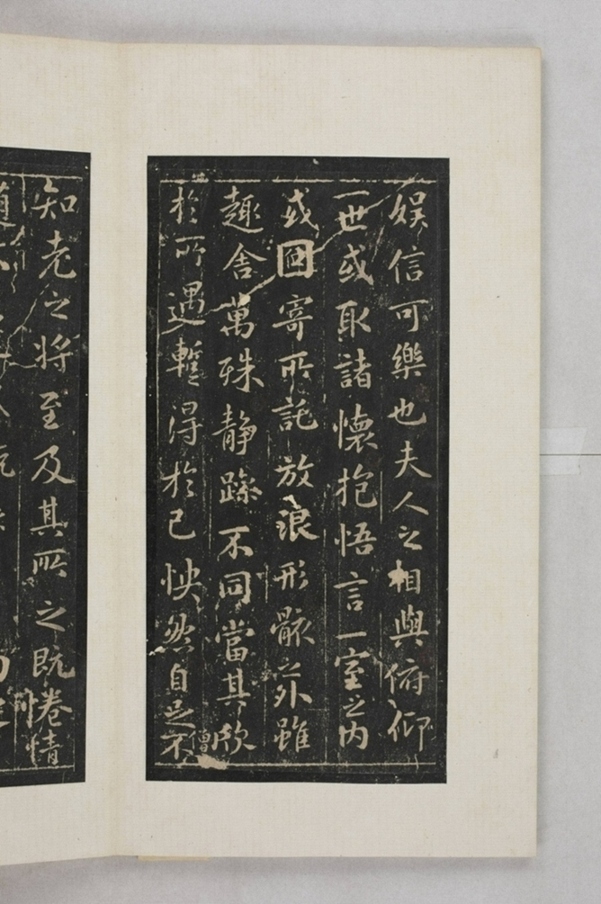 娛信可樂也夫人之相與俯仰
一世或取諸懷抱悟言一室之內
或因寄所託放浪形骸之外雖
趣舍萬殊靜躁不同當其欣
於所遇蹔得於己怏然自足不
僧
知老之將至及其所之既惓情
隨